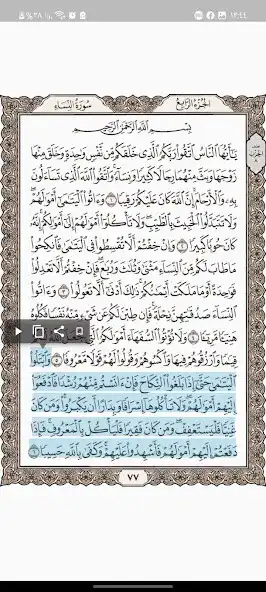 ٪٣٨
١٢:٤٤
سُورَةُ النِّسَاءِ
الجُزْءُ الرَّابِعُ
بِسْمِ اللَّهِ الرَّحْمَٰنِ الرَّحِيمِ
يَٰٓأَيُّهَا النَّاسُ اتَّقُوا رَبَّكُمُ الَّذِي خَلَقَكُم مِّن نَّفْسٍ وَٰحِدَةٍ وَخَلَقَ مِنْهَا
زَوْجَهَا وَبَثَّ مِنْهُمَا رِجَالًا كَثِيرًا وَنِسَآءً وَاتَّقُوا اللَّهَ الَّذِي تَسَآءَلُونَ
بِهِۦ وَالْأَرْحَامَ إِنَّ اللَّهَ كَانَ عَلَيْكُمْ رَقِيبًا ١ وَءَاتُوا الْيَتَٰمَىٰٓ أَمْوَٰلَهُمْ
وَلَا تَتَبَدَّلُوا الْخَبِيثَ بِالطَّيِّبِ وَلَا تَأْكُلُوٓا أَمْوَٰلَهُمْ إِلَىٰٓ أَمْوَٰلِكُمْ إِنَّهُۥ
كَانَ حُوبًا كَبِيرًا ٢ وَإِنْ خِفْتُمْ أَلَّا تُقْسِطُوا فِي الْيَتَٰمَىٰ فَانكِحُوا
مَا طَابَ لَكُم مِّنَ النِّسَآءِ مَثْنَىٰ وَثُلَٰثَ وَرُبَٰعَ فَإِنْ خِفْتُمْ أَلَّا تَعْدِلُوا
فَوَٰحِدَةً أَوْ مَا مَلَكَتْ أَيْمَٰنُكُمْ ذَٰلِكَ أَدْنَىٰٓ أَلَّا تَعُولُوا ٣ وَءَاتُوا
النِّسَآءَ صَدُقَٰتِهِنَّ نِحْلَةً فَإِن طِبْنَ لَكُمْ عَن شَيْءٍ مِّنْهُ نَفْسًا فَكُلُوهُ
هَنِيٓـًٔا مَّرِيٓـًٔا ٤ وَلَا تُؤْتُوا السُّفَهَآءَ أَمْوَٰلَكُمُ الَّتِي
قِيَٰمًا وَارْزُقُوهُمْ فِيهَا وَاكْسُوهُمْ وَقُولُوا لَهُمْ قَوْلًا مَّعْرُوفًا ٥ وَابْتَلُوا
الْيَتَٰمَىٰ حَتَّىٰٓ إِذَا بَلَغُوا النِّكَاحَ فَإِنْ ءَانَسْتُم مِّنْهُمْ رُشْدًا فَادْفَعُوٓا
إِلَيْهِمْ أَمْوَٰلَهُمْ وَلَا تَأْكُلُوهَآ إِسْرَافًا وَبِدَارًا أَن يَكْبَرُوا وَمَن كَانَ
غَنِيًّا فَلْيَسْتَعْفِفْ وَمَن كَانَ فَقِيرًا فَلْيَأْكُلْ بِالْمَعْرُوفِ فَإِذَا
دَفَعْتُمْ إِلَيْهِمْ أَمْوَٰلَهُمْ فَأَشْهِدُوا عَلَيْهِمْ وَكَفَىٰ بِاللَّهِ حَسِيبًا ٦
٧٧